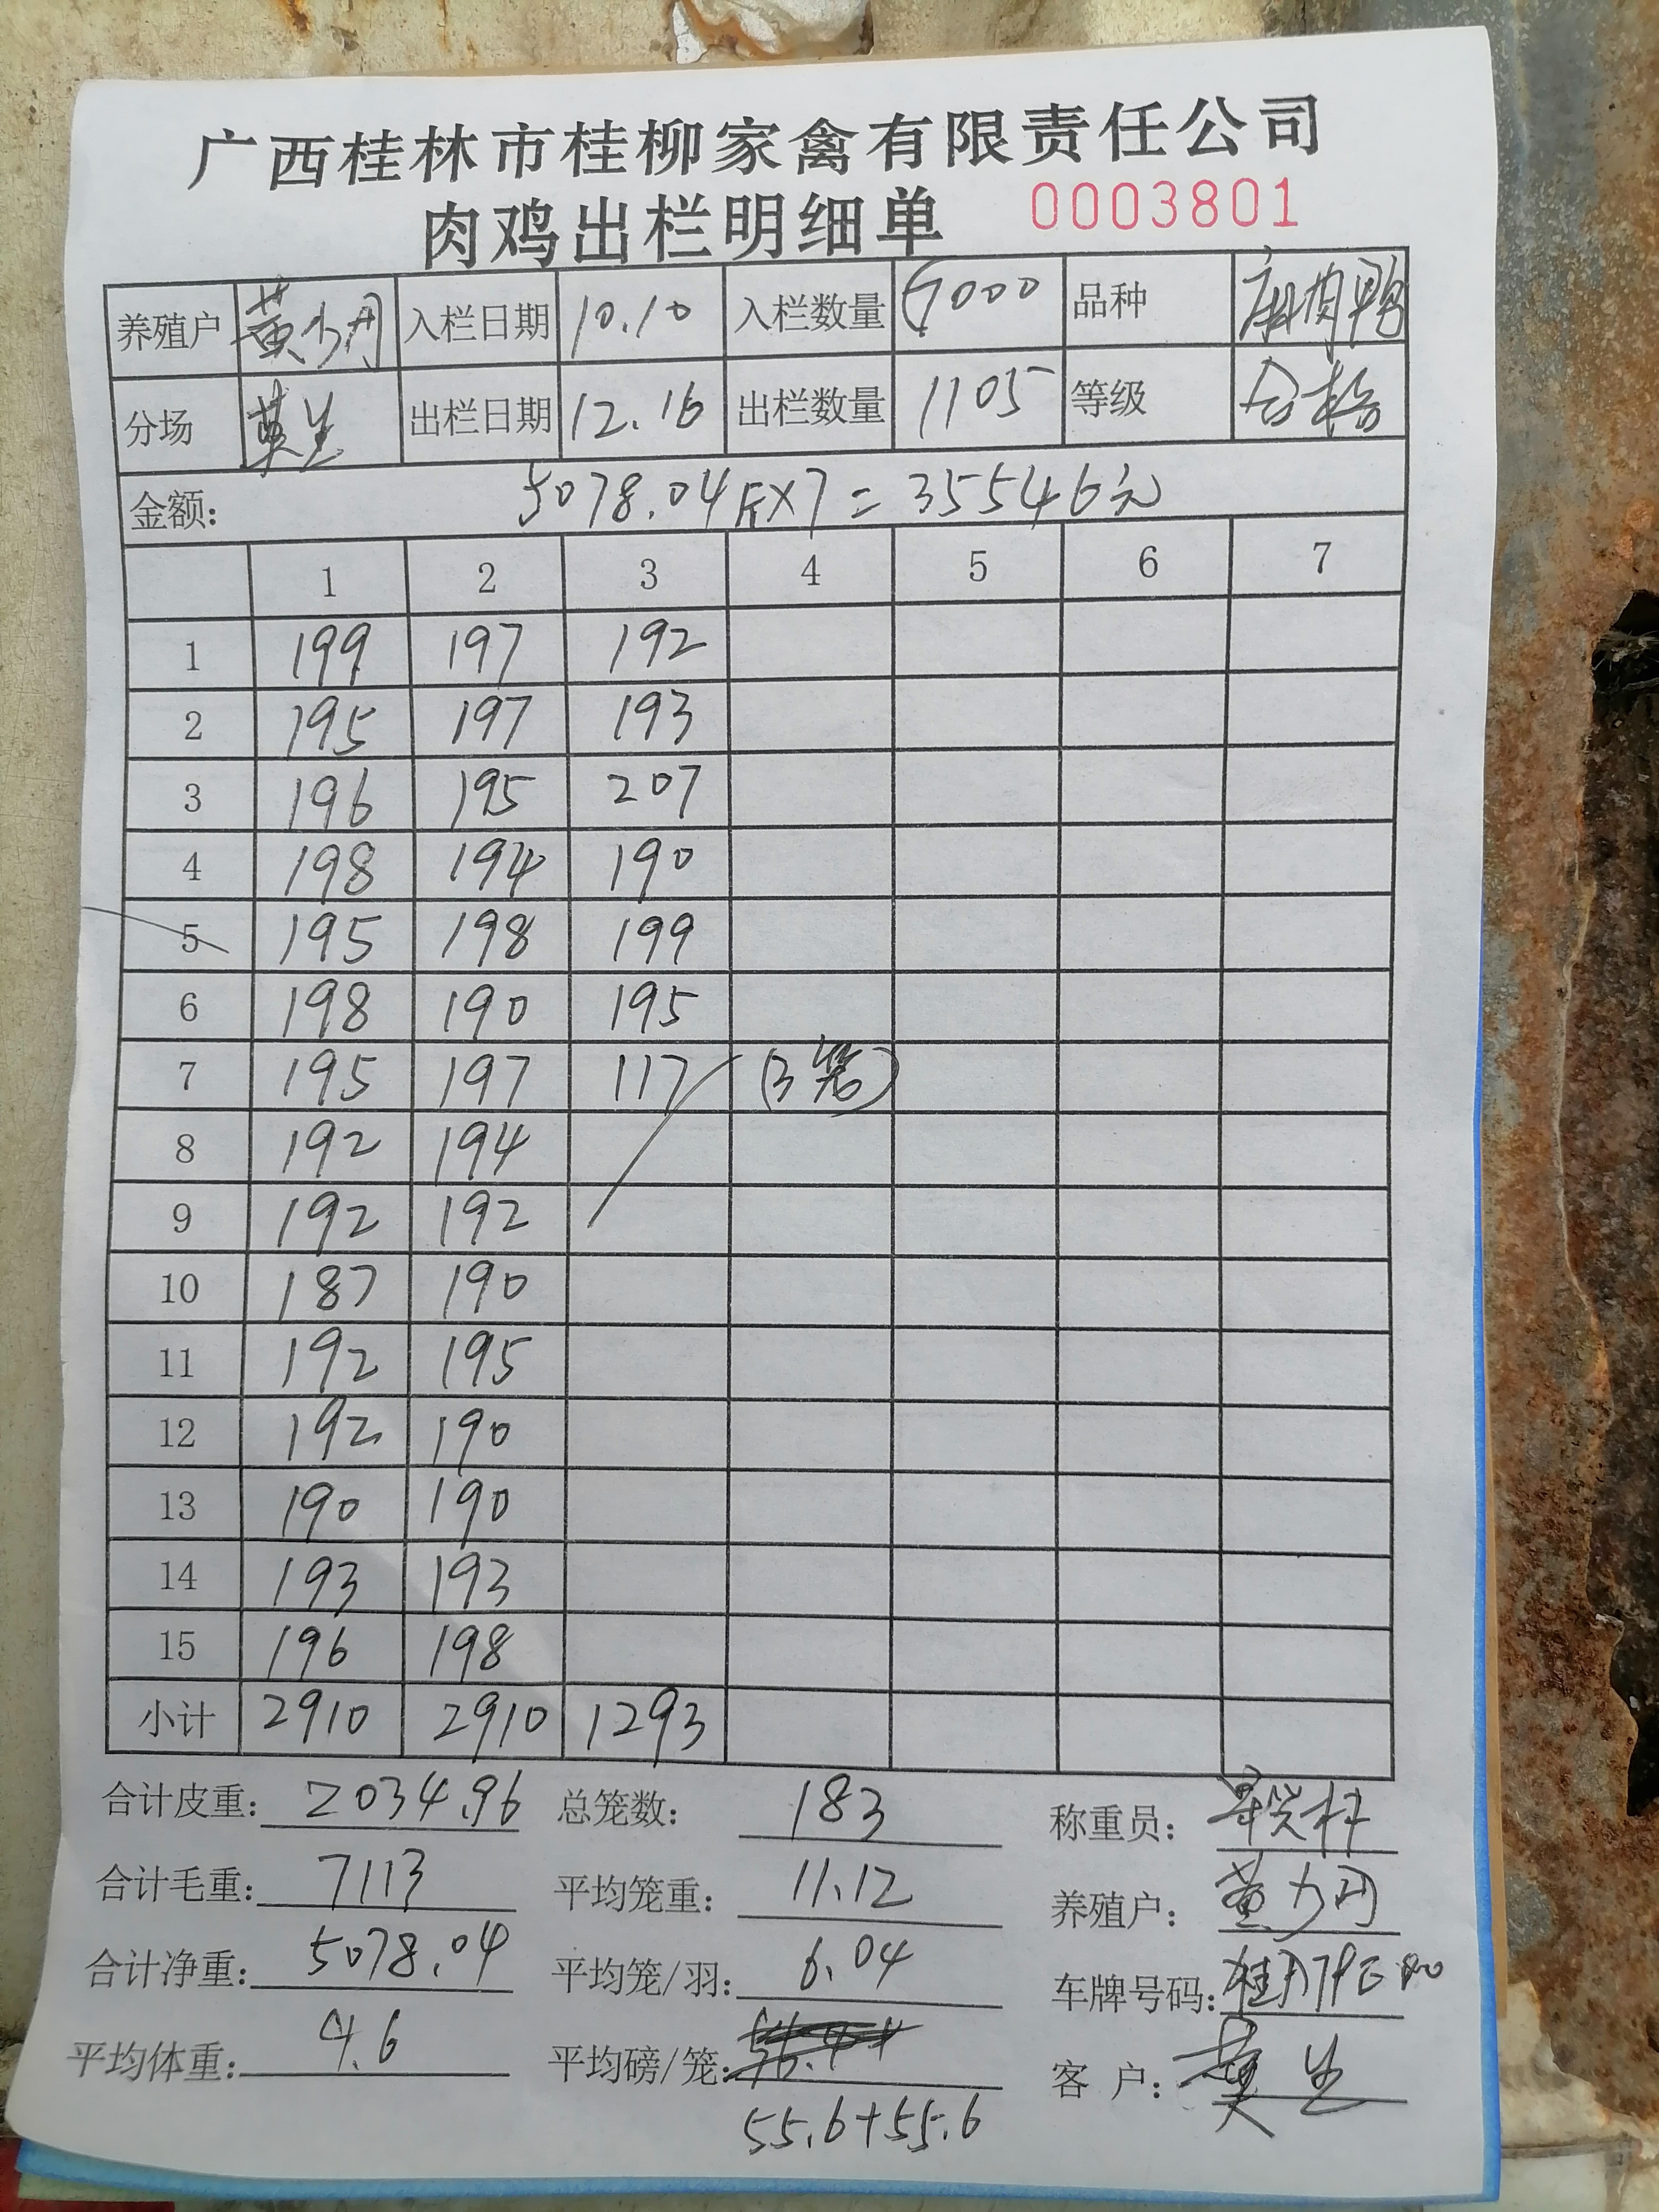 广西桂林市桂柳家禽有限责任公司
肉鸡出栏明细单 0003801
养殖户 黄 入栏日期 10.10 入栏数量 7000 品种
分场 莫生 出栏日期 12.16 出栏数量 1105 等级 合格
金额: 5078.04斤×7=35546元
1 2 3 4 5 6 7
1 199 197 192
2 195 197 193
3 196 195 207
4 198 194 190
5 195 198 199
6 198 190 195
7 195 197 117 (3笼)
8 192 194
9 192 192
10 187 190
11 192 195
12 192 190
13 190 190
14 193 193
15 196 198
小计 2910 2910 1293
合计皮重: 2034.96 总笼数: 183 称重员:
合计毛重: 7113 平均笼重: 11.12 养殖户: 黄
合计净重: 5078.04 平均笼/羽: 6.04 车牌号码: 桂
平均体重: 4.6 平均磅/笼: 客户: 莫生
55.6+55.6